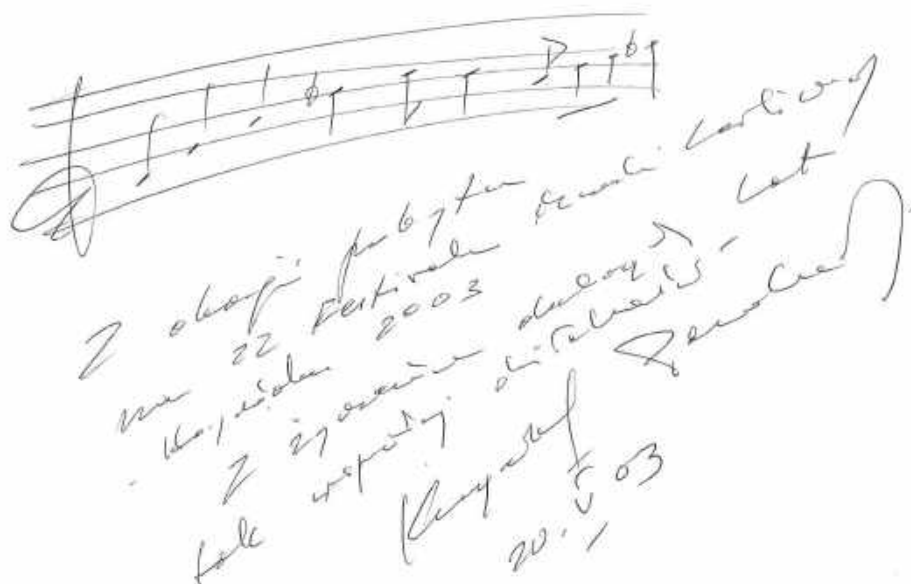 Z okazji pobytu
na 22 Festiwalu Muzyki Cerkiewnej
- Hajnówka 2003
Z życzeniem dalszych lat
tak wspaniałej działalności -
Krzysztof Penderecki
20.V.03